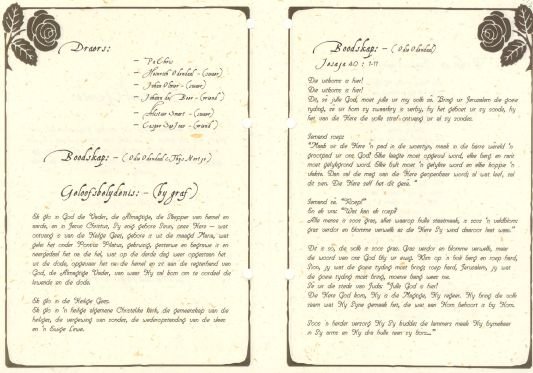 Draers:
- Pa Chris
- Heinrich Odendaal - (swaer)
- Johan Olwer - (swaer)
- Johann de Beer - (vriend)
- Alistair Smart - (swaer)
- (vriend)
Boodskap: - (Odie Odendaal & Thys Nortje)
Geloofsbelydenis: - (by graf)
Ek glo in God die Vader, die Almagtige, die Skepper van hemel en
aarde, en in Jesus Christus, Sy enig gebore Seun, onse Here - wat
ontvang is van die Heilige Gees, gebore is uit die maagd Maria, wat
gely het onder Pontius Pilatus, gekruisig, gesterwe en begrawe is en
neergedaal het na die hel, wat op die derde dag weer opgestaan het
uit die dode, opgevaar het na die hemel en sit aan die regterhand van
God, die Almagtige Vader, van waar Hy sal kom om te oordeel die
lewende en die dode.
Ek glo in die Heilige Gees.
Ek glo in 'n heilige algemene Christelike kerk, die gemeenskap van die
heiliges, vergewing van sondes, die wederopstanding van die vlees
en 'n Ewige Lewe.
Boodskap: - (Odie Odendaal)
Jesaja 40 : 1-11
Die uitkoms is hier!
Die uitkoms is hier!
Dit, sê julle God, moet julle vir my volk sê. Bring vir Jerusalem die goeie
tyding, sê vir hom sy swaarkry is verby, hy het geboet vir sy sonde, hy
het van die Here die volle straf ontvang vir al sy sondes.
Iemand roep:
"Maak vir die Here 'n pad in die woestyn, maak in die barre wêreld 'n
grootpad vir ons God! Elke laagte moet opgevul word, elke berg en rant
moet gelykgemaak word. Elke bult moet 'n gelykte word en elke koppie 'n
vlakte. Dan sal die mag van die Here geopenbaar word, al wat leef, sal
dit sien. Die Here self het dit gesê."
Iemand sê: "Roep!"
En ek vra: "Wat kan ek roep?
Alle mense is soos gras, alles waarop hulle staatmaak, is soos 'n veldblom:
gras verdor en blomme verwelk as die Here Sy wind daaroor laat waai."
Dit is so, die volk is soos gras. Gras verdor en blomme verwelk, maar
die woord van ons God bly vir ewig. Klim op 'n hoë berg en roep hard,
Sion, jy wat die goeie tyding moet bring, roep hard, Jerusalem, jy wat
die goeie tyding moet bring, moenie bang wees nie.
Sê vir die stede van Juda: "Julle God is hier!
Die Here God kom, Hy is die Magtige, Hy regeer. Hy bring die volk
saam wat Hy Syne gemaak het, die wat aan Hom behoort is by Hom.
Soos 'n herder versorg Hy Sy kudde; die lammers maak Hy bymekaar
in Sy arms en Hy dra hulle teen sy bors..."